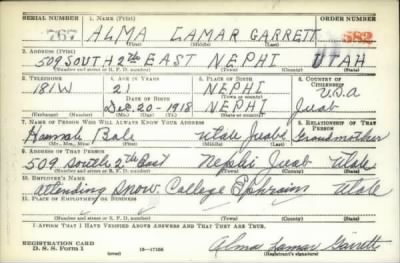 SERIAL NUMBER 1. NAME (Print) ORDER NUMBER
767 ALMA LAMAR GARRETT 582
(First) (Middle) (Last)
2. ADDRESS (Print)
509 SOUTH 2th EAST NEPHI UTAH
(Number and street or R. F. D. number) (Town) (County) (State)
3. TELEPHONE 4. AGE IN YEARS 5. PLACE OF BIRTH 6. COUNTRY OF CITIZENSHIP
181W 21 NEPHI USA
DATE OF BIRTH (Town or county)
Dec 20-1918 NEPHI Juab
(Exchange) (Number) (Mo.) (Day) (Yr.) (State or country)
7. NAME OF PERSON WHO WILL ALWAYS KNOW YOUR ADDRESS 8. RELATIONSHIP OF THAT PERSON
Hannah Bale Utah Juab Grandmother
(Mr., Mrs., Miss) (First) (Middle) (Last)
9. ADDRESS OF THAT PERSON
509 South 2th East Nephi Juab Utah
(Number and street or R. F. D. number) (Town) (County) (State)
10. EMPLOYER'S NAME
attending Snow College Ephraim Utah
11. PLACE OF EMPLOYMENT OR BUSINESS
(Number and street or R. F. D. number) (Town) (County) (State)
I AFFIRM THAT I HAVE VERIFIED ABOVE ANSWERS AND THAT THEY ARE TRUE.
REGISTRATION CARD
D. S. S. Form 1 (over) 16—17105 Alma Lamar Garrett
(Registrant's signature)